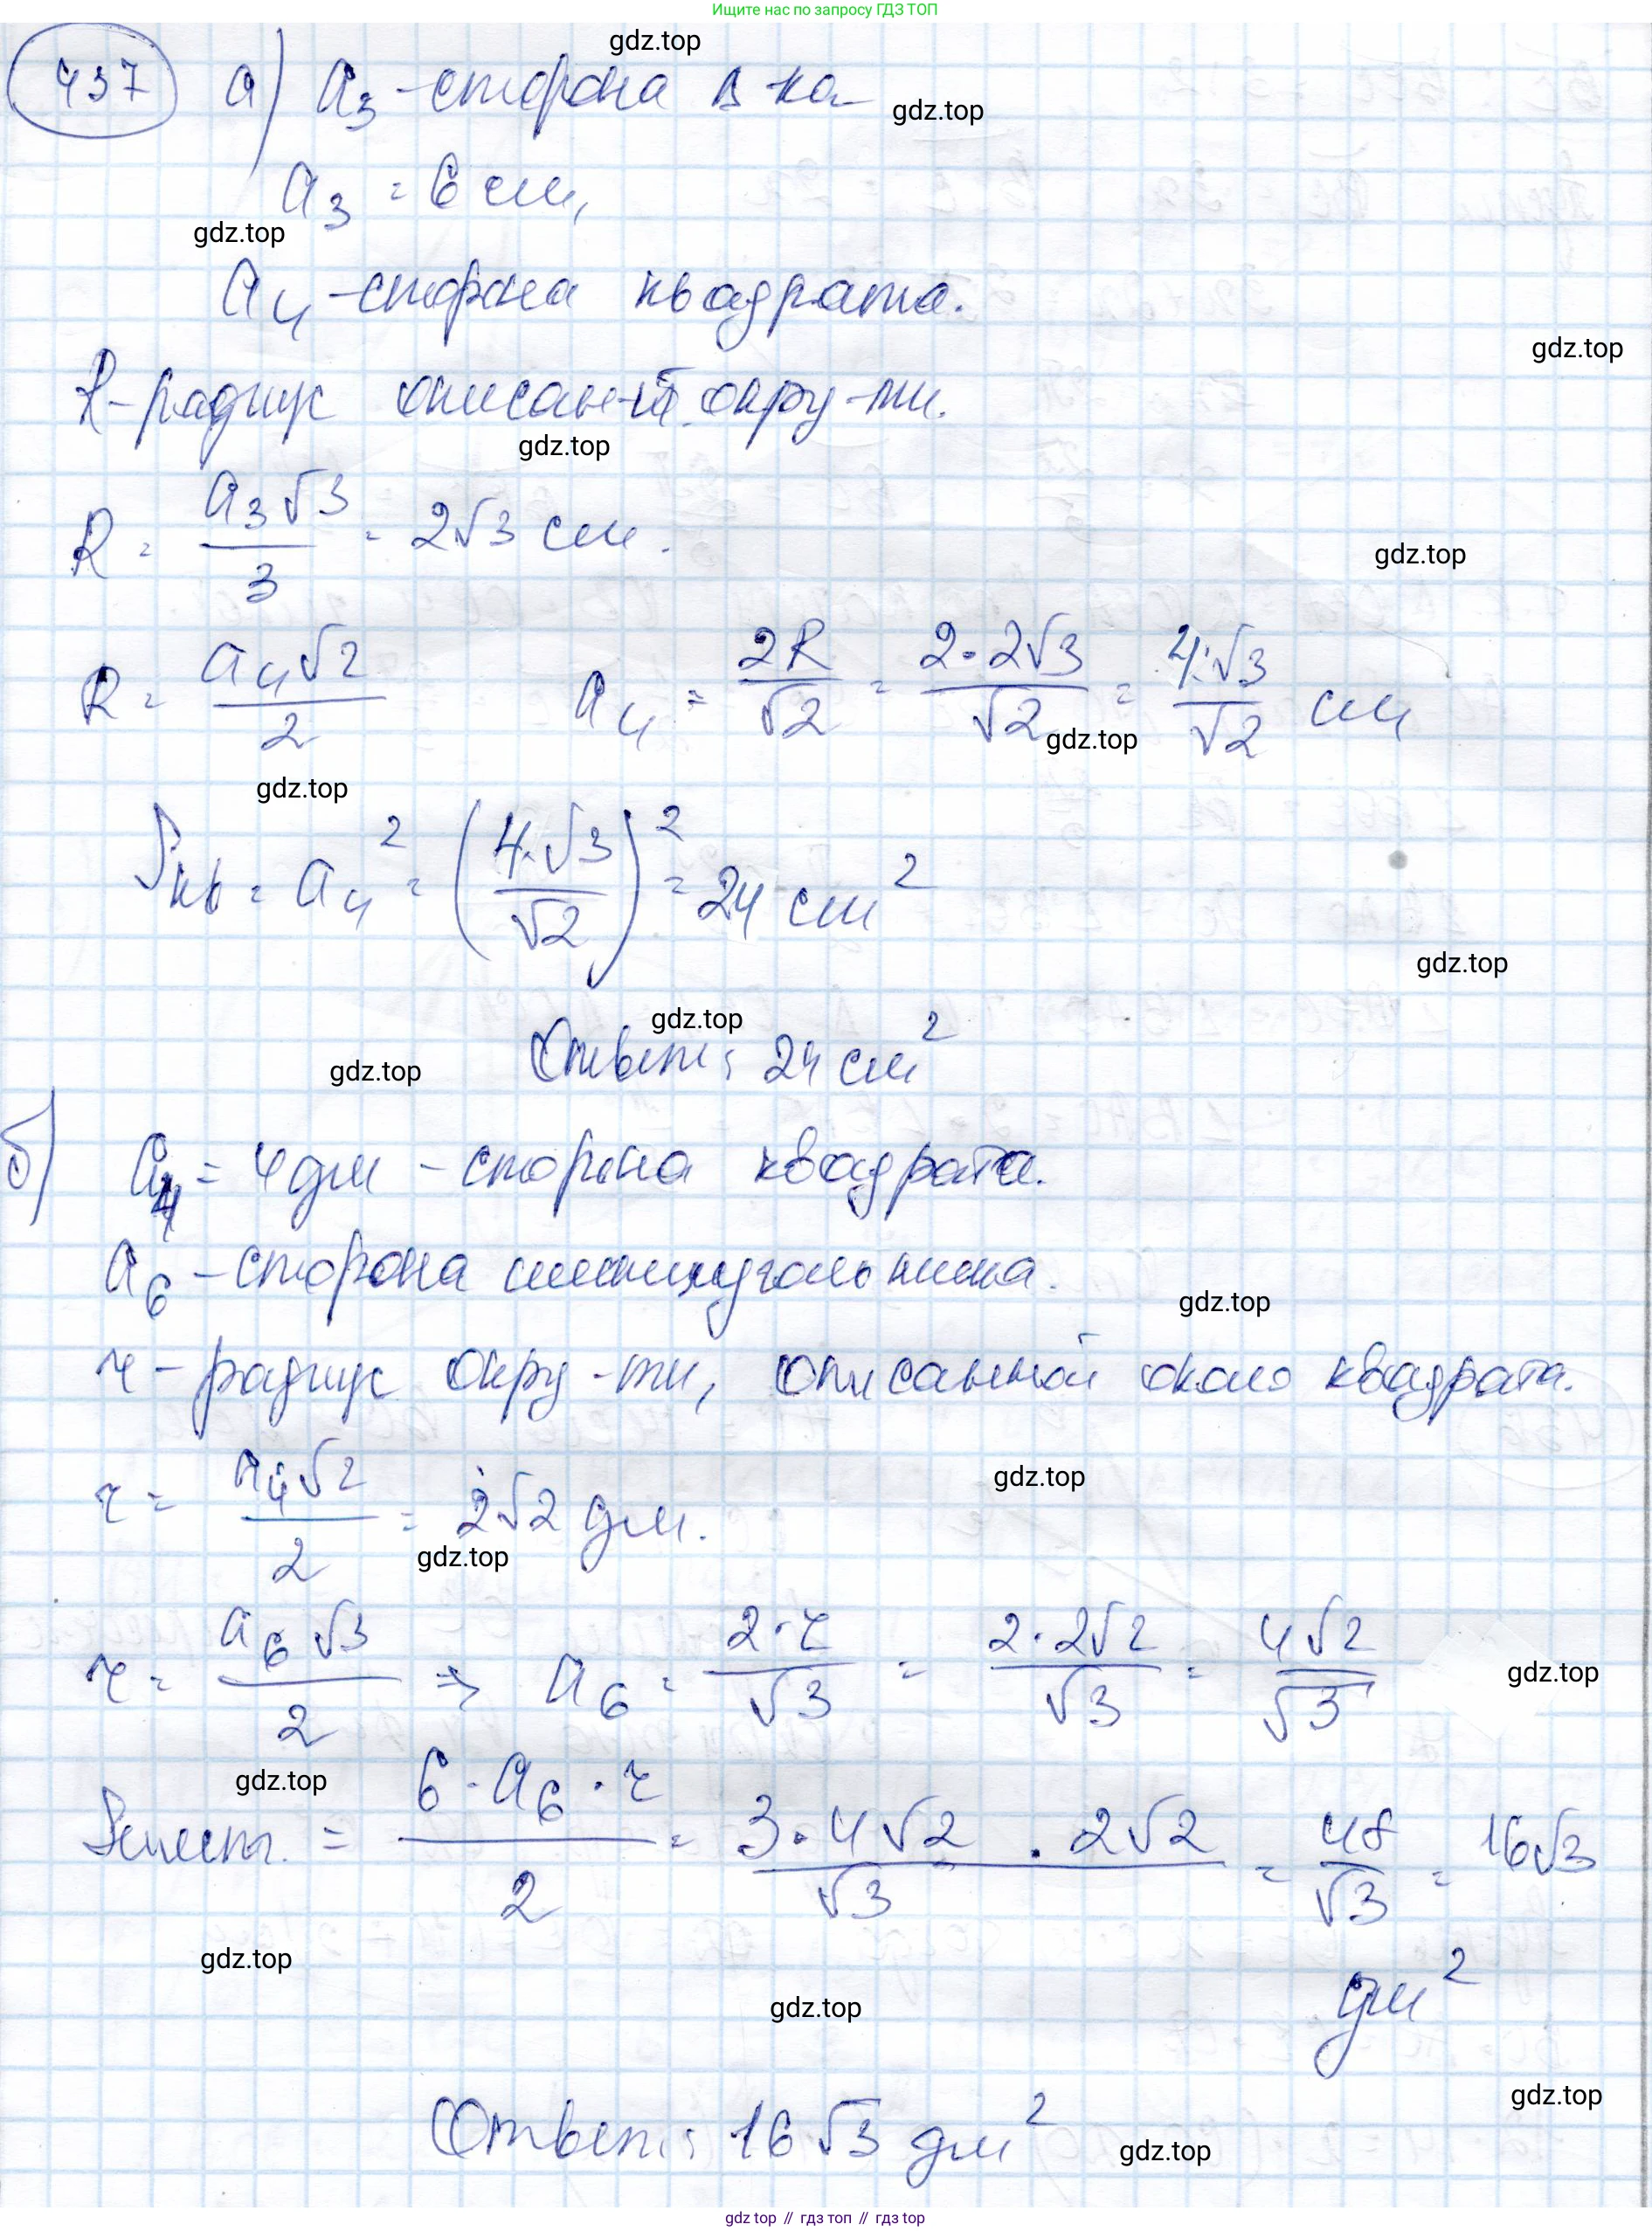 Ищите нас по запросу ГДЗ ТОП
gdz.top
437 а) a₃ - сторона Δ-ка
gdz.top
a₃ = 6 см,
gdz.top
a₄ - сторона квадрата.
gdz.top
R - радиус описан-й окру-ти.
gdz.top
R = a₃√3/3 = 2√3 см.
gdz.top
R = a₄√2/2 a₄ = 2R/√2 = 2·2√3/√2 = 4·√3/√2 см
gdz.top
gdz.top
Sкв = a₄² = (4·√3/√2)² = 24 см²
gdz.top
gdz.top
Ответ: 24 см²
gdz.top
б) a₄ = 4 дм - сторона квадрата.
a₆ - сторона шестиугольника.
gdz.top
r - радиус окру-ти, описанной около квадрата.
gdz.top
r = a₄√2/2 = 2√2 дм.
gdz.top
r = a₆√3/2 => a₆ = 2·r/√3 = 2·2√2/√3 = 4√2/√3
gdz.top
gdz.top
Sшест. = 6·a₆·r/2 = 3·4√2·2√2/√3 = 48/√3 = 16√3
дм²
gdz.top
gdz.top
gdz.top
Ответ: 16√3 дм²
gdz.top
gdz top // гдз топ // гдз top